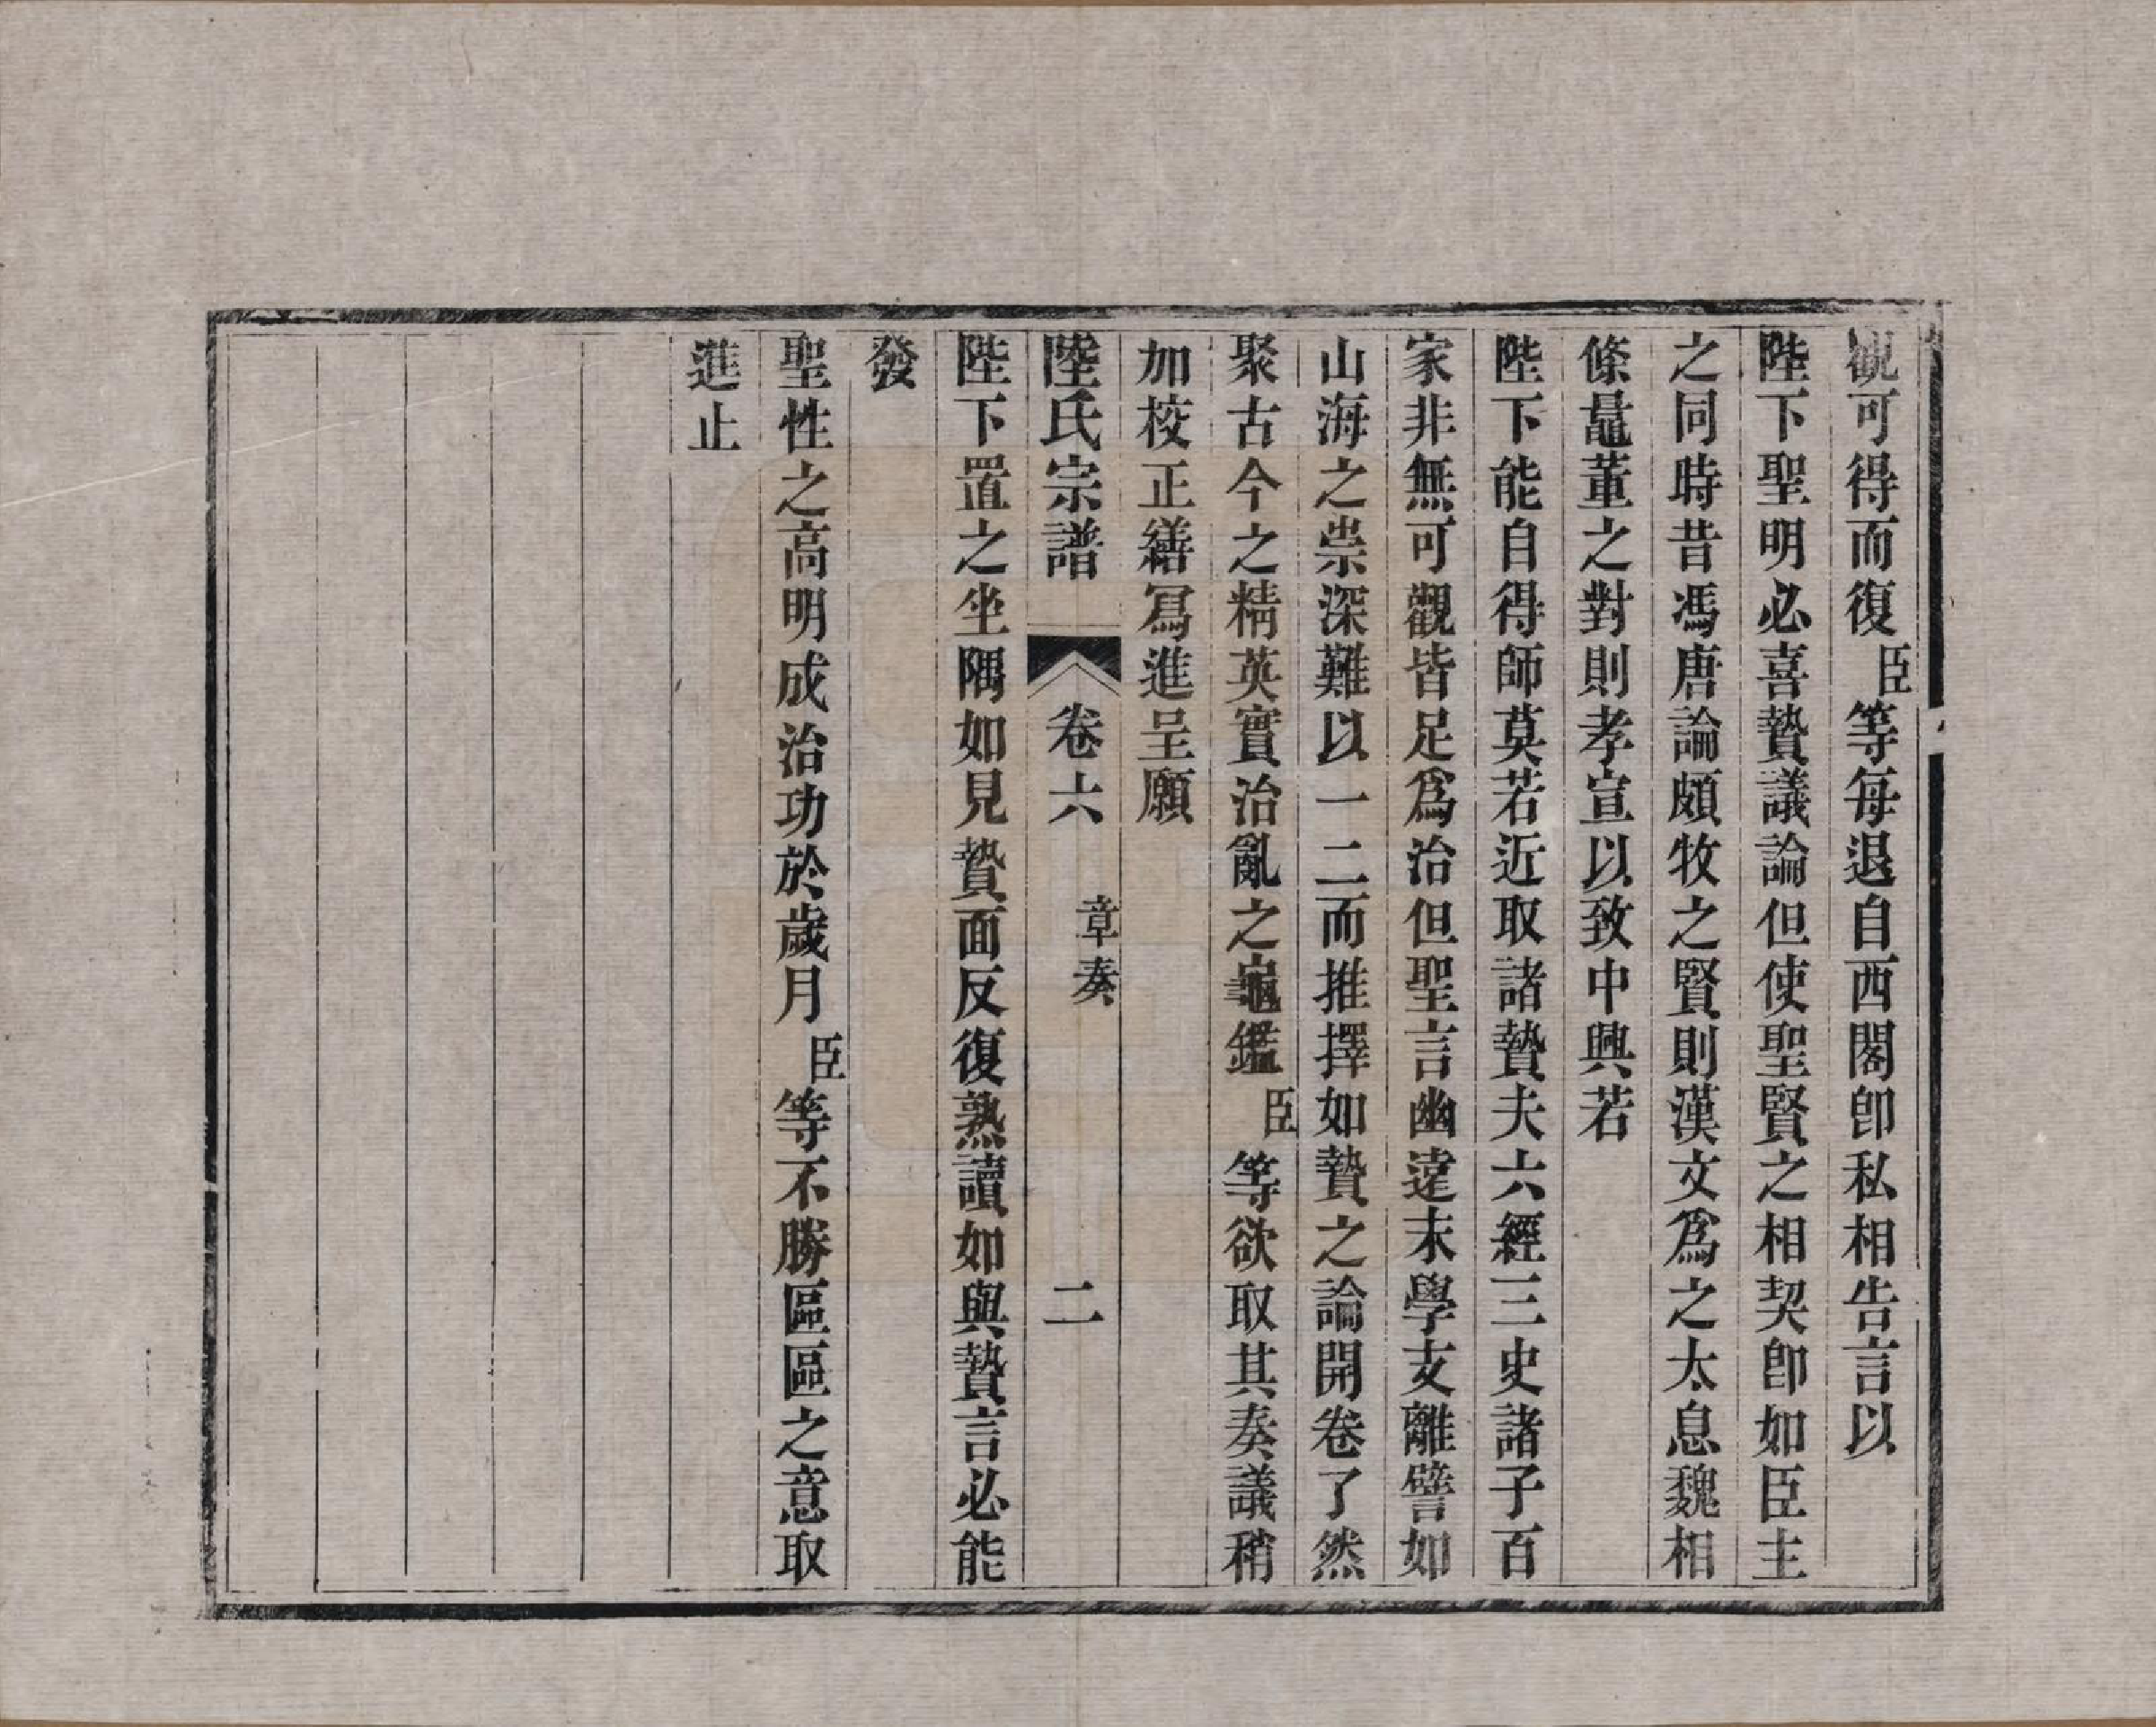 觀可得而復臣等每退自西閣卽私相告言以
陛下聖明必喜贄議論但使聖賢之相契卽如臣主
之同時昔馮唐論頗牧之賢則漢文爲之太息魏相
條鼂董之對則孝宣以致中興若
陛下能自得師莫若近取諸贄夫六經三史諸子百
家非無可觀皆足爲治但聖言幽遠末學支離譬如
山海之崇深難以一二而推擇如贄之論開卷了然
聚古今之精英實治亂之龜鑑臣等欲取其奏議稍
加校正繕寫進呈願
陸氏宗譜 卷六 章奏 二
陛下置之坐隅如見贄面反復熟讀如與贄言必能
發
聖性之高明成治功於歲月臣等不勝區區之意取
進止